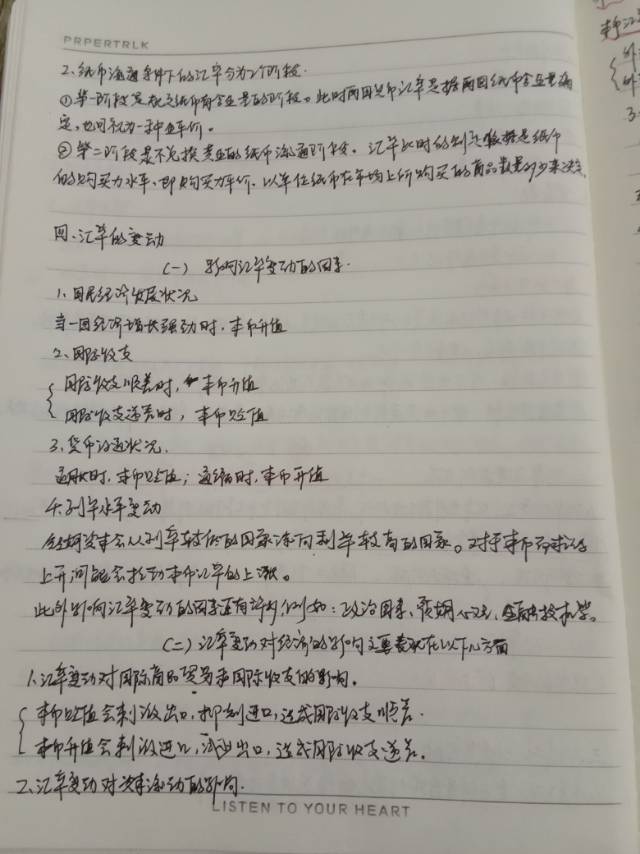 PRPERTRLK
2、纸币流通条件下的汇率分为2个阶段.
①第一阶段是规定纸币含金量的阶段。此时两国货币汇率是据两国纸币含金量确
定,也可视为一种金平价。
②第二阶段是不兑换黄金的纸币流通阶段。汇率此时的制定依据是纸币
的购买力水平、即购买力平价. 以单位纸币在市场上所购买的商品数量多少来决定.
四、汇率的变动
(一) 影响汇率变动的因素.
1、国民经济发展状况
当一国经济增长强劲时,本币升值
2、国际收支
国际收支顺差时, 本币升值
国际收支逆差时, 本币贬值
3、货币流通状况.
通胀时,本币贬值;通缩时,本币升值
4、利率水平变动
短期资本会从利率较低的国家流向利率较高的国家。对于本币而言
上升间能会推动本币汇率的上涨。
此外影响汇率变动的因素还有许多,例如:政治因素,预期,金融技术等。
(二)汇率变动对经济的影响主要表现在以下几方面
1、汇率变动对国际商品贸易和国际收支的影响。
本币贬值会刺激出口,抑制进口,造成国际收支顺差.
本币升值会刺激进口,减少出口,造成国际收支逆差.
2、汇率变动对资本流动的影响.
LISTEN TO YOUR HEART
本币
外
外
3.